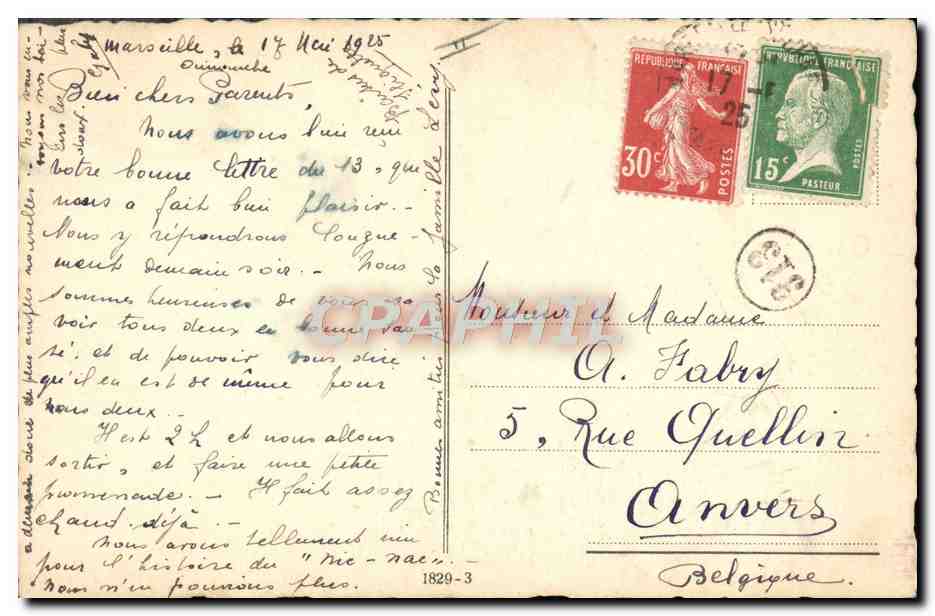 Marseille, le 17 Mai 1925
Dimanche
Bien chers Parents,
Nous avons bien reçu
votre bonne lettre du 13, qui
nous a fait bien plaisir. -
Nous y répondrons longue-
ment demain soir. - Nous
sommes heureuses de vous sa-
voir tous deux en bonne san-
té, et de pouvoir vous dire
qu'il en est de même pour
nous deux. -
Il est 2 h et nous allons
sortir, et faire une petite
promenade. - Il fait assez
chaud déjà. -
Nous avons tellement ri
pour l'histoire du "nic-nac".
Nous n'en pouvions plus.
à demain donc de plus amples nouvelles. - Nous vous en-
voyons nos bai-
sers les plus
doux.
Gaby
Bonnes amitiés pour la famille
1829-3
RÉPUBLIQUE FRANÇAISE
30c
POSTES
RÉPUBLIQUE FRANÇAISE
15c
POSTES
PASTEUR
17 - 5
25
319
Monsieur et Madame
A. Fabry
5, Rue Quellin
Anvers
Belgique.
CPAPHIL